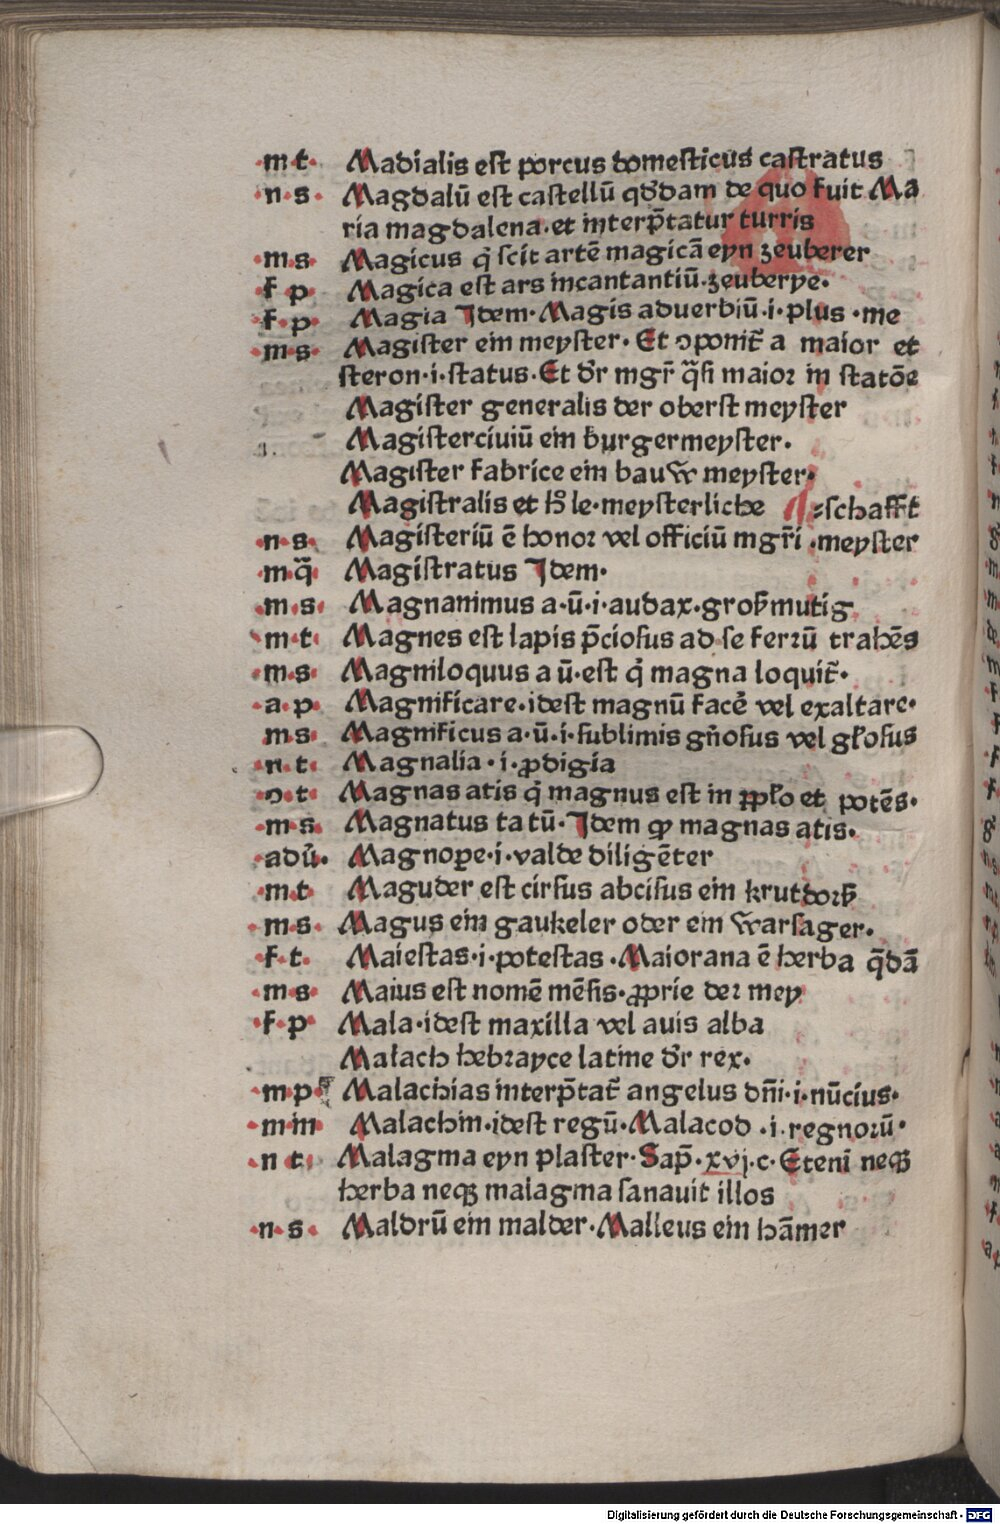 ·m t· Madialis est porcus domesticus castratus
·n s· Magdalū est castellū qd̄dam de quo fuit Ma
ria magdalena·et interp̄tatur turris
·m s· Magicus q̇ scit artē magicā eyn zeuberer
·f p· Magica est ars incantantiū·zeuberye·
·f p· Magia Idem·Magis aduerbiū·i·plus ·me
·m s· Magister ein meyster· Et ↄponit̄ a maior et
steron·i·status·Et dr̄ mgr̄ q̄si maior in statōe
Magister generalis der oberst meyster
Magisterciuiū ein burgermeyster·
Magister fabrice ein bauw̄ meyster·
Magistralis et h̄ le·meysterliche ⸗schafft
·n s· Magisteriū ē honor vel officiū mgr̄i ·meyster
·m q̄· Magistratus Idem·
·m s· Magnanimus a·ū·i·audax·groſzmutig
·m t· Magnes est lapis p̄ciosus ad se ferrū trahēs
·m s· Magniloquus a ū·est q̇ magna loquit̄·
·a p· Magnificare·idest magnū facē vel exaltare·
m s· Magnificus a·ū·i·sublimis gn̄osus vel gl̄osus
·n t· Magnalia·i·ꝓdigia
·ↄ t· Magnas atis q̇ magnus est in ꝓpl̄o et potēs·
·m s· Magnatus ta tū·Idem qꝫ magnas atis·
·adū· Magnoꝑe·i·valde diligēter
·m t· Maguder est cirsus abcisus ein krutdorſz
·m s· Magus ein gaukeler oder ein w̄arsager·
·f t· Maiestas·i·potestas·Maiorana ē herba q̄dā
·m s· Maius est nomē mēsis·ꝓprie der mey
·f p· Mala·idest maxilla vel auis alba
Malach hebrayce latine dr̄ rex·
·m p· Malachias interp̄tat̄ angelus dn̄i·i·nūcius·
·m in· Malachin·idest regū·Malacod ·i·regnorū·
·n t· Malagma eyn plaster·Sap̄·xvj·c·Eteni neqꝫ
herba neqꝫ malagma sanauit illos
·n s· Maldrū ein malder·Malleus ein hāmer
Digitalisierung gefördert durch die Deutsche Forschungsgemeinschaft - DFG